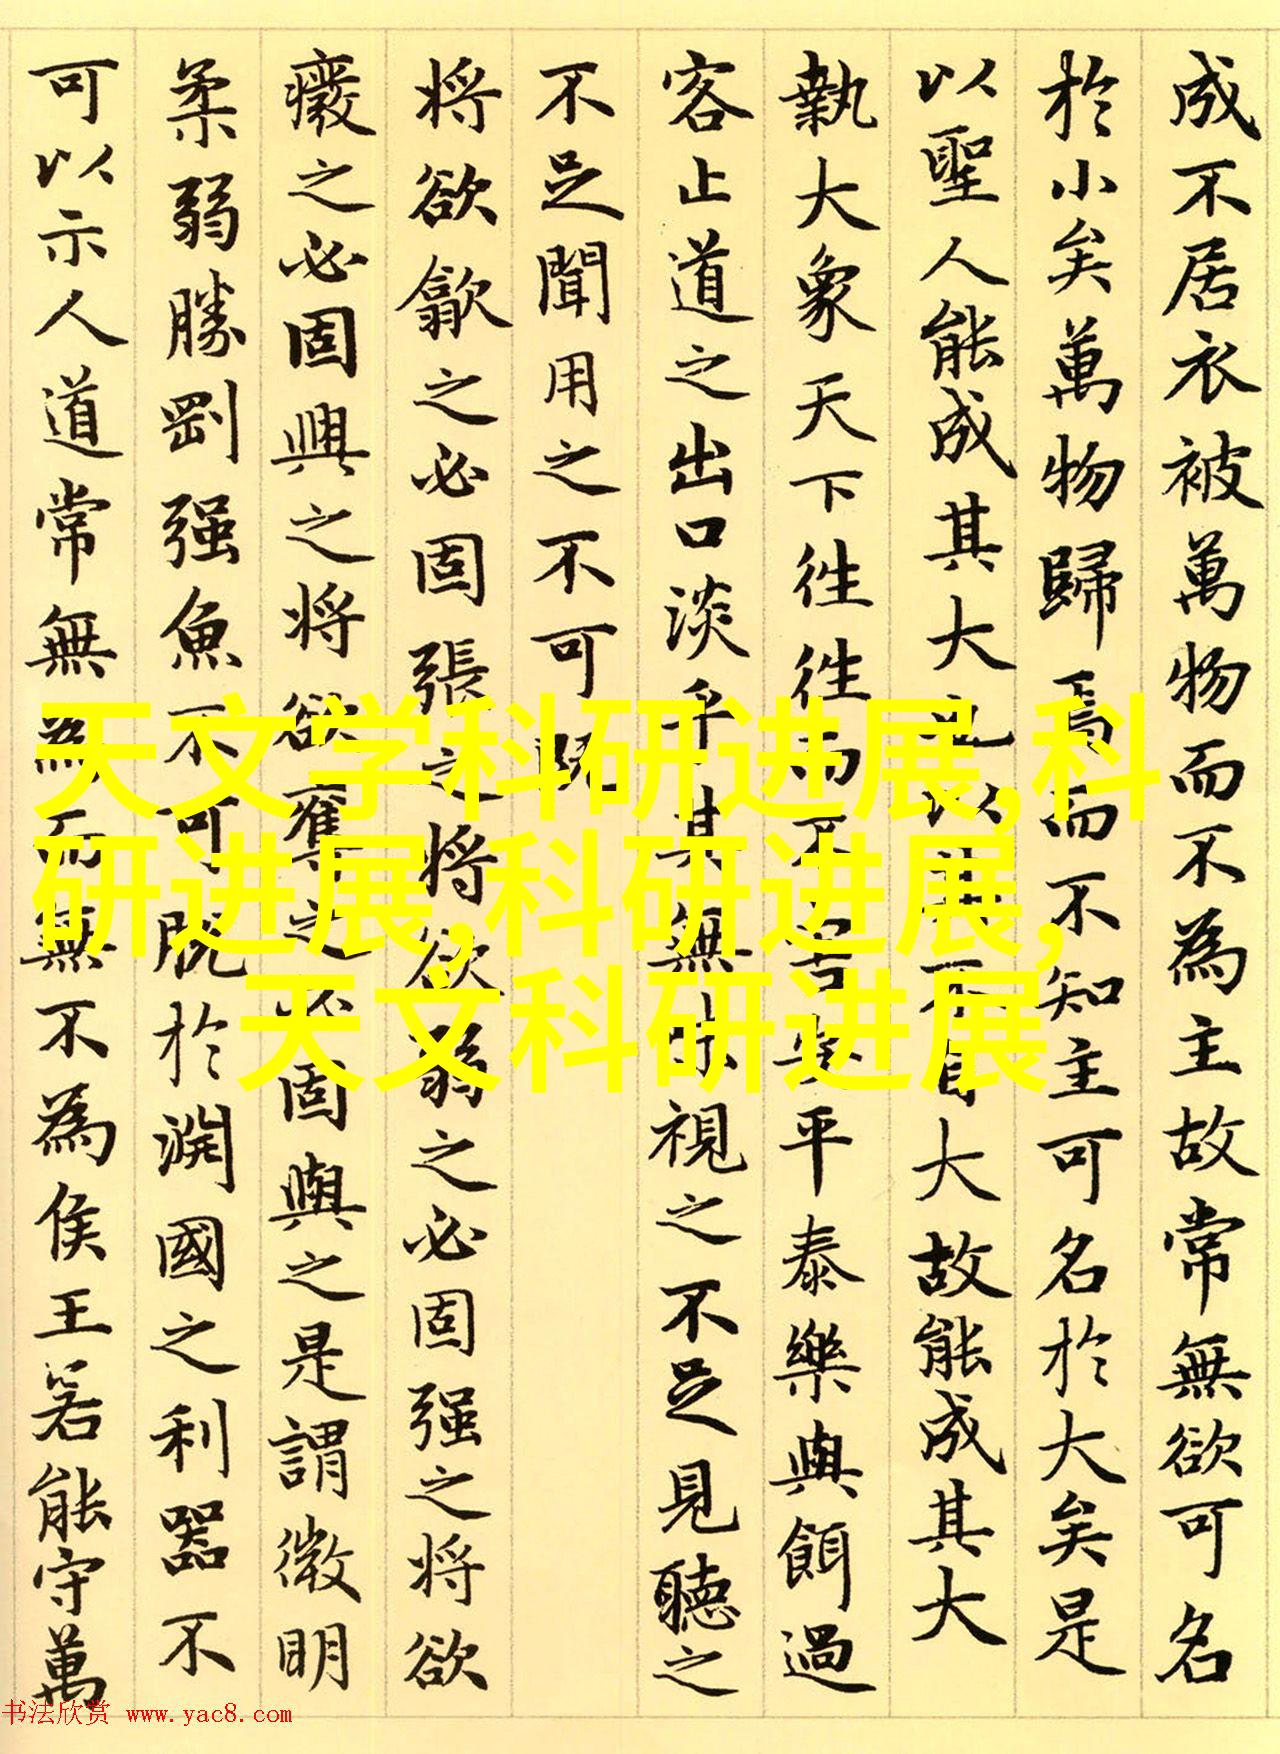 成不居衣被萬物而不為主故常無欲可名
於小矣萬物歸焉而不知主可名於大矣是
以聖人能成其大也以其不自大故能成其大
執大象天下往往而不害安平泰樂與餌過
客止道之出口淡乎其無味視之不足見聽之
不足聞用之不可既
将欲歙之必固張之将欲弱之必固强之将欲
癈之必固興之将欲奪之必固與之是謂微明
柔弱勝剛强魚不可脱於淵國之利器不
可以示人道常無為而無不為侯王若能守萬
天文学科研进展,科
研进展,科研进展,
天文科研进展
书法欣赏 www.yac8.com